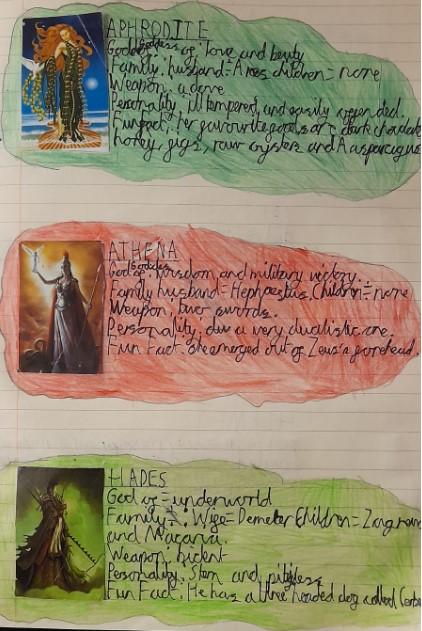 APHRODITE
Goddess of love and beuty
Family: husband = Ares children = none
Weapon, a dove
Personality, ill tempered, and easily offended.
Fun fact: her favourite foods are dark chocolate
honey, figs, raw oysters and Aasparagus
ATHENA
God Goddess of: Wisdom, and military victory.
Family husband = Hephaestus, Children = none
Weapon, swords.
Personality, a very dualistic one.
Fun Fact. She emerged out of Zeus's forehead.
HADES
God of = underworld
Family = Wife = Demeter Children =
and Macaria.
Weapon: bident
Personality: Stern and pityless
Fun Fact: He has a three headed dog called